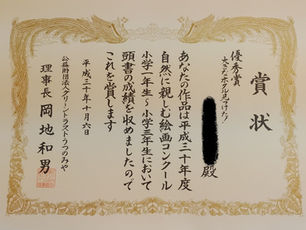 賞状
優秀賞
大きなホタル見つけた!
殿
あなたの作品は平成三十年度
自然に親しむ絵画コンクール
小学一年生~小学三年生において
頭書の成績を収めましたので
これを賞します
平成三十年十月六日
公益財団法人グリーントラストうつのみや
理事長 岡地和男